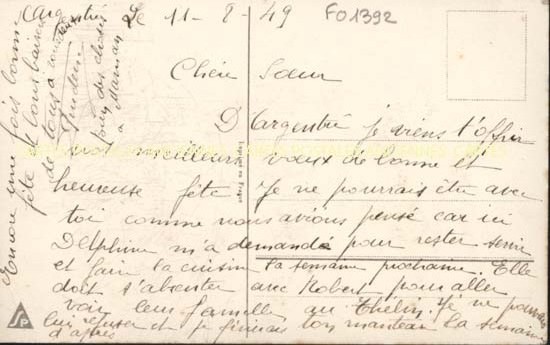 Argentré le 11-8-49
FO1392
Chère Sœur
D'Argentré je viens t'offrir
mes meilleurs vœux de bonne et
heureuse fête Je ne pourrais être avec
toi comme nous avions pensé car ici
Delphine m'a demandé pour rester servir
et faire la cuisine la semaine prochaine. Elle
doit s'absenter avec Robert pour aller
voir leur famille au Thelin. Je ne pouvais
lui refuser et je finirais ton manteau la semaine
d'après
Encore une fois bonne
fête et bons baisers
de tous à
bien des choses
à Maman
Imprimé en France